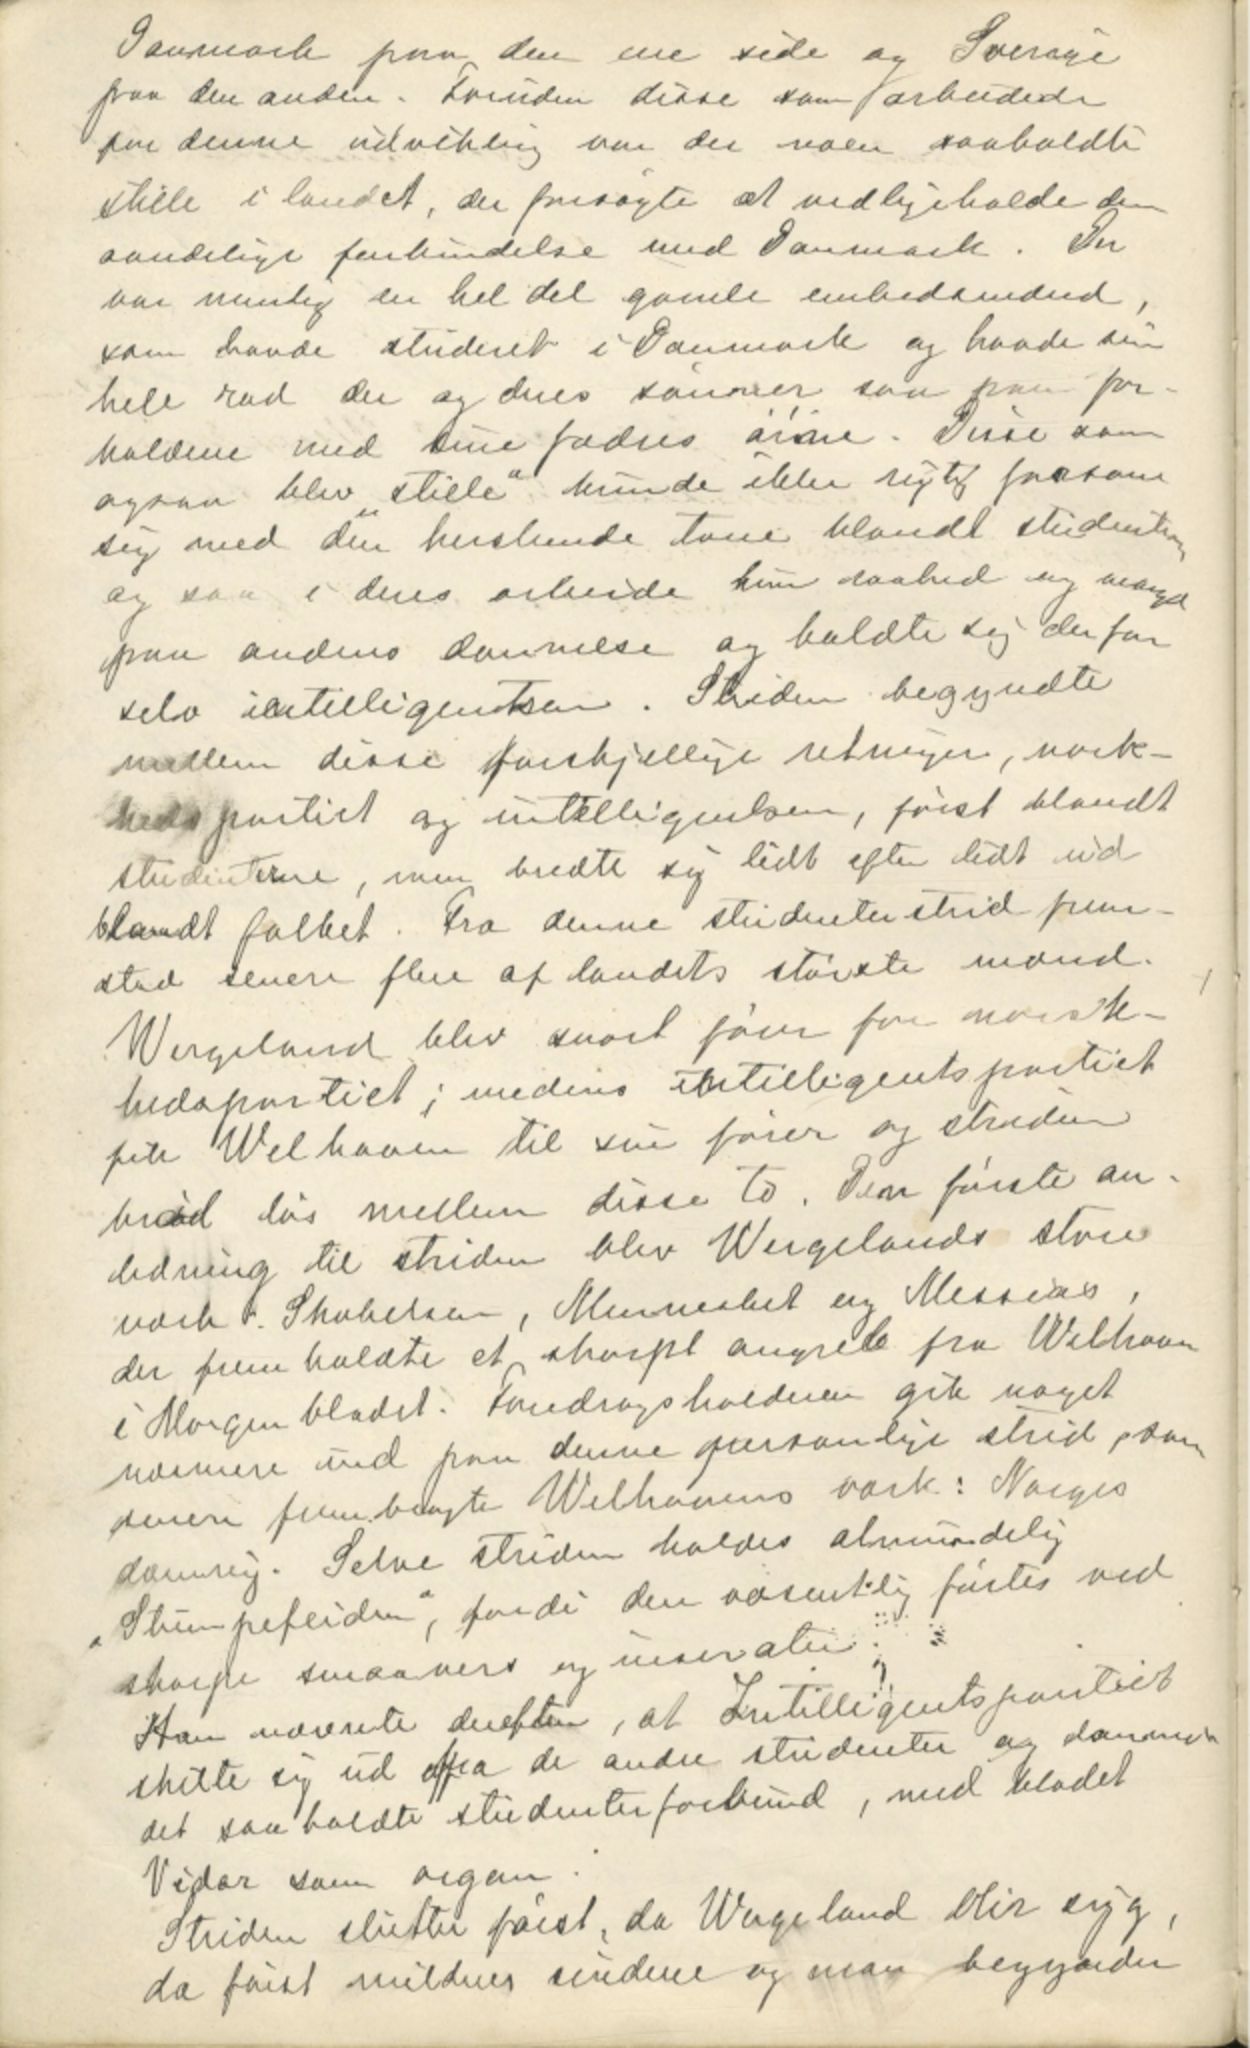 Danmark paa den ene side og Sverige
paa den anden. Foruden disse som arbeidede
for denne udvikling var der noen saakaldte
stille i landet, der forsøgte at vedligeholde den
aandelige forbindelse med Danmark. Der
var nemlig en hel del gamle embedsmænd,
som havde studeret i Danmark og havde sin
hele rod der og deres sønner saa paa for-
holdene med sine fædres øine. Disse som
ogsaa blev "stille" kunde ikke rigtig forsone
sig med den herskende tone blandt studenterne
og saa i deres arbeide kun raahed og mangel
paa aandens dannelse og kaldte sig derfor
selv intelligentsen. Striden begyndte
mellem disse forskjællige retninger, norsk-
hedspartiet og intelligentsen, først blandt
studenterne, men bredte sig lidt efter lidt ud
blandt folket. Fra denne studenterstrid frem-
stod senere flere af landets største mænd.
Wergeland blev snart fører for norsk-
hedspartiet; medens intelligentspartiet
fik Welhaven til sin fører og striden
brød løs mellem disse to. Den første an-
ledning til striden blev Wergelands store
værk: Skabelsen, Mennesket og Messias,
der fremkaldte et skarpt angreb fra Welhaven
i Morgenbladet. Foredragsholderen gik noget
nærmere ind paa denne personlige strid, som
senere frembragte Welhavens værk: Norges
dæmring. Selve striden kaldes almindelig
"Stumpefeiden", fordi den væsentlig førtes ved
skarpe smaavers og inserater.
Han nævnte derefter, at Intelligentspartiet
skilte sig ud fra de andre studenter og dannede
det saakaldte studenterforbund, med bladet
Vidar som organ.
Striden slutter først, da Wergeland blir syg,
da først mildnes sindene og man begynder